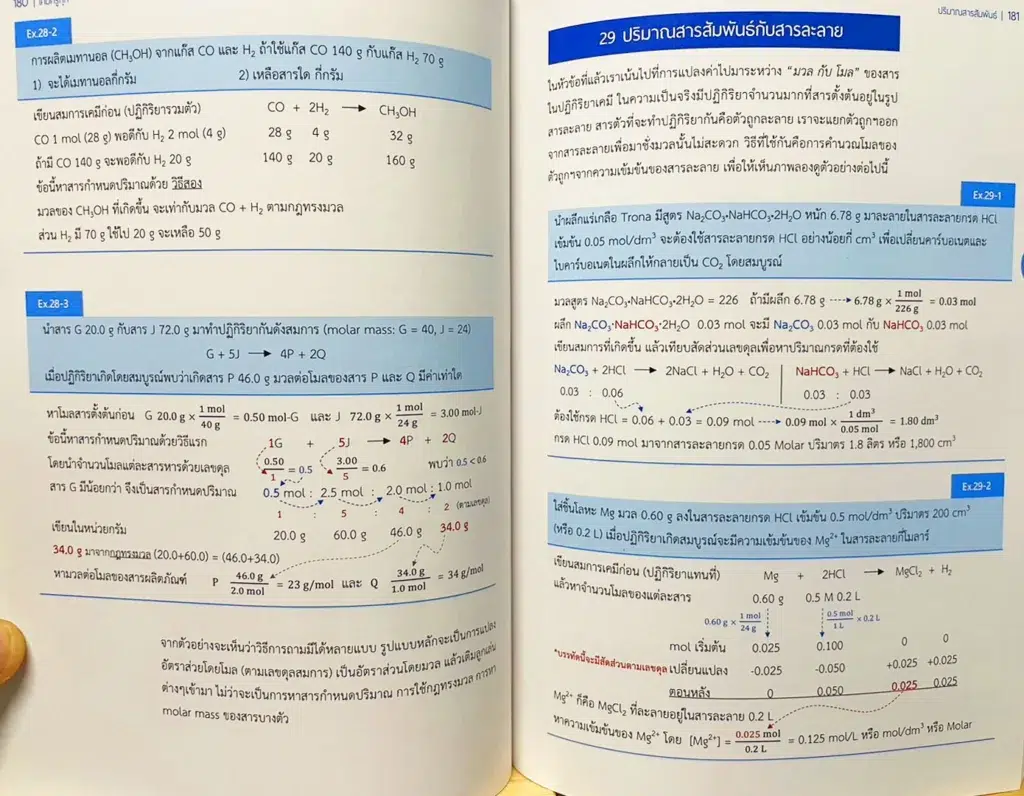 180 |
Ex.28-2
การผลิตเมทานอล (CH₃OH) จากแก๊ส CO และ H₂ ถ้าใช้แก๊ส CO 140 g กับแก๊ส H₂ 70 g
1) จะได้เมทานอลกี่กรัม 2) เหลือสารใด กี่กรัม
เขียนสมการเคมีก่อน (ปฏิกิริยารวมตัว) CO + 2H₂ → CH₃OH
CO 1 mol (28 g) พอดีกับ H₂ 2 mol (4 g) 28 g 4 g 32 g
ถ้ามี CO 140 g จะพอดีกับ H₂ 20 g 140 g 20 g 160 g
ข้อนี้หาสารกำหนดปริมาณด้วย วิธีสอง
มวลของ CH₃OH ที่เกิดขึ้น จะเท่ากับมวล CO + H₂ ตามกฎทรงมวล
ส่วน H₂ มี 70 g ใช้ไป 20 g จะเหลือ 50 g
Ex.28-3
นำสาร G 20.0 g กับสาร J 72.0 g มาทำปฏิกิริยากันดังสมการ (molar mass: G = 40, J = 24)
G + 5J → 4P + 2Q
เมื่อปฏิกิริยาเกิดโดยสมบูรณ์พบว่าเกิดสาร P 46.0 g มวลต่อโมลของสาร P และ Q มีค่าเท่าใด
หาโมลสารตั้งต้นก่อน G 20.0 g × 1 mol/40 g = 0.50 mol-G และ J 72.0 g × 1 mol/24 g = 3.00 mol-J
ข้อนี้หาสารกำหนดปริมาณด้วยวิธีแรก 1G + 5J → 4P + 2Q
โดยนำจำนวนโมลแต่ละสารหารด้วยเลขดุล 0.50/1 = 0.5 3.00/5 = 0.6 พบว่า 0.5 < 0.6
สาร G มีน้อยกว่า จึงเป็นสารกำหนดปริมาณ 0.5 mol : 2.5 mol : 2.0 mol : 1.0 mol
1 : 5 : 4 : 2 (ตามเลขดุล)
เขียนในหน่วยกรัม 20.0 g 60.0 g 46.0 g 34.0 g
34.0 g มาจากกฎทรงมวล (20.0+60.0) = (46.0+34.0)
หามวลต่อโมลของสารผลิตภัณฑ์ P 46.0 g/2.0 mol = 23 g/mol และ Q 34.0 g/1.0 mol = 34 g/mol
จากตัวอย่างจะเห็นว่าวิธีการถามมีได้หลายแบบ รูปแบบหลักจะเป็นการแปลง
อัตราส่วนโดยโมล (ตามเลขดุลสมการ) เป็นอัตราส่วนโดยมวล แล้วเติมลูกเล่น
ต่างๆเข้ามา ไม่ว่าจะเป็นการหาสารกำหนดปริมาณ การใช้กฎทรงมวล การหา
molar mass ของสารบางตัว
ปริมาณสารสัมพันธ์ | 181
29 ปริมาณสารสัมพันธ์กับสารละลาย
ในหัวข้อที่แล้วเราเน้นไปที่การแปลงค่าไปมาระหว่าง “มวล กับ โมล” ของสาร
ในปฏิกิริยาเคมี ในความเป็นจริงมีปฏิกิริยาจำนวนมากที่สารตั้งต้นอยู่ในรูป
สารละลาย สารตัวที่จะทำปฏิกิริยากันคือตัวถูกละลาย เราจะแยกตัวถูกฯออก
จากสารละลายเพื่อมาชั่งมวลนั้นไม่สะดวก วิธีที่ใช้กันคือการคำนวณโมลของ
ตัวถูกฯจากความเข้มข้นของสารละลาย เพื่อให้เห็นภาพลองดูตัวอย่างต่อไปนี้
Ex.29-1
นำผลึกแร่เกลือ Trona มีสูตร Na₂CO₃•NaHCO₃•2H₂O หนัก 6.78 g มาละลายในสารละลายกรด HCl
เข้มข้น 0.05 mol/dm³ จะต้องใช้สารละลายกรด HCl อย่างน้อยกี่ cm³ เพื่อเปลี่ยนคาร์บอเนตและ
ไบคาร์บอเนตในผลึกให้กลายเป็น CO₂ โดยสมบูรณ์
มวลสูตร Na₂CO₃•NaHCO₃•2H₂O = 226 ถ้ามีผลึก 6.78 g ----> 6.78 g × 1 mol/226 g = 0.03 mol
ผลึก Na₂CO₃•NaHCO₃•2H₂O 0.03 mol จะมี Na₂CO₃ 0.03 mol กับ NaHCO₃ 0.03 mol
เขียนสมการที่เกิดขึ้น แล้วเทียบสัดส่วนเลขดุลเพื่อหาปริมาณกรดที่ต้องใช้
Na₂CO₃ + 2HCl → 2NaCl + H₂O + CO₂ | NaHCO₃ + HCl → NaCl + H₂O + CO₂
0.03 : 0.06 0.03 : 0.03
ต้องใช้กรด HCl = 0.06 + 0.03 = 0.09 mol ----> 0.09 mol × 1 dm³/0.05 mol = 1.80 dm³
กรด HCl 0.09 mol มาจากสารละลายกรด 0.05 Molar ปริมาตร 1.8 ลิตร หรือ 1,800 cm³
Ex.29-2
ใส่ชิ้นโลหะ Mg มวล 0.60 g ลงในสารละลายกรด HCl เข้มข้น 0.5 mol/dm³ ปริมาตร 200 cm³
(หรือ 0.2 L) เมื่อปฏิกิริยาเกิดสมบูรณ์จะมีความเข้มข้นของ Mg²⁺ ในสารละลายกี่โมลาร์
เขียนสมการเคมีก่อน (ปฏิกิริยาแทนที่) Mg + 2HCl → MgCl₂ + H₂
แล้วหาจำนวนโมลของแต่ละสาร 0.60 g 0.5 M 0.2 L
0.60 g × 1 mol/24 g 0.5 mol/1 L × 0.2 L
mol เริ่มต้น 0.025 0.100 0 0
*บรรทัดนี้จะมีสัดส่วนตามเลขดุล เปลี่ยนแปลง -0.025 -0.050 +0.025 +0.025
ตอนหลัง 0 0.050 0.025 0.025
Mg²⁺ ก็คือ MgCl₂ ที่ละลายอยู่ในสารละลาย 0.2 L
หาความเข้มข้นของ Mg²⁺ โดย [Mg²⁺] = 0.025 mol/0.2 L = 0.125 mol/L หรือ mol/dm³ หรือ Molar